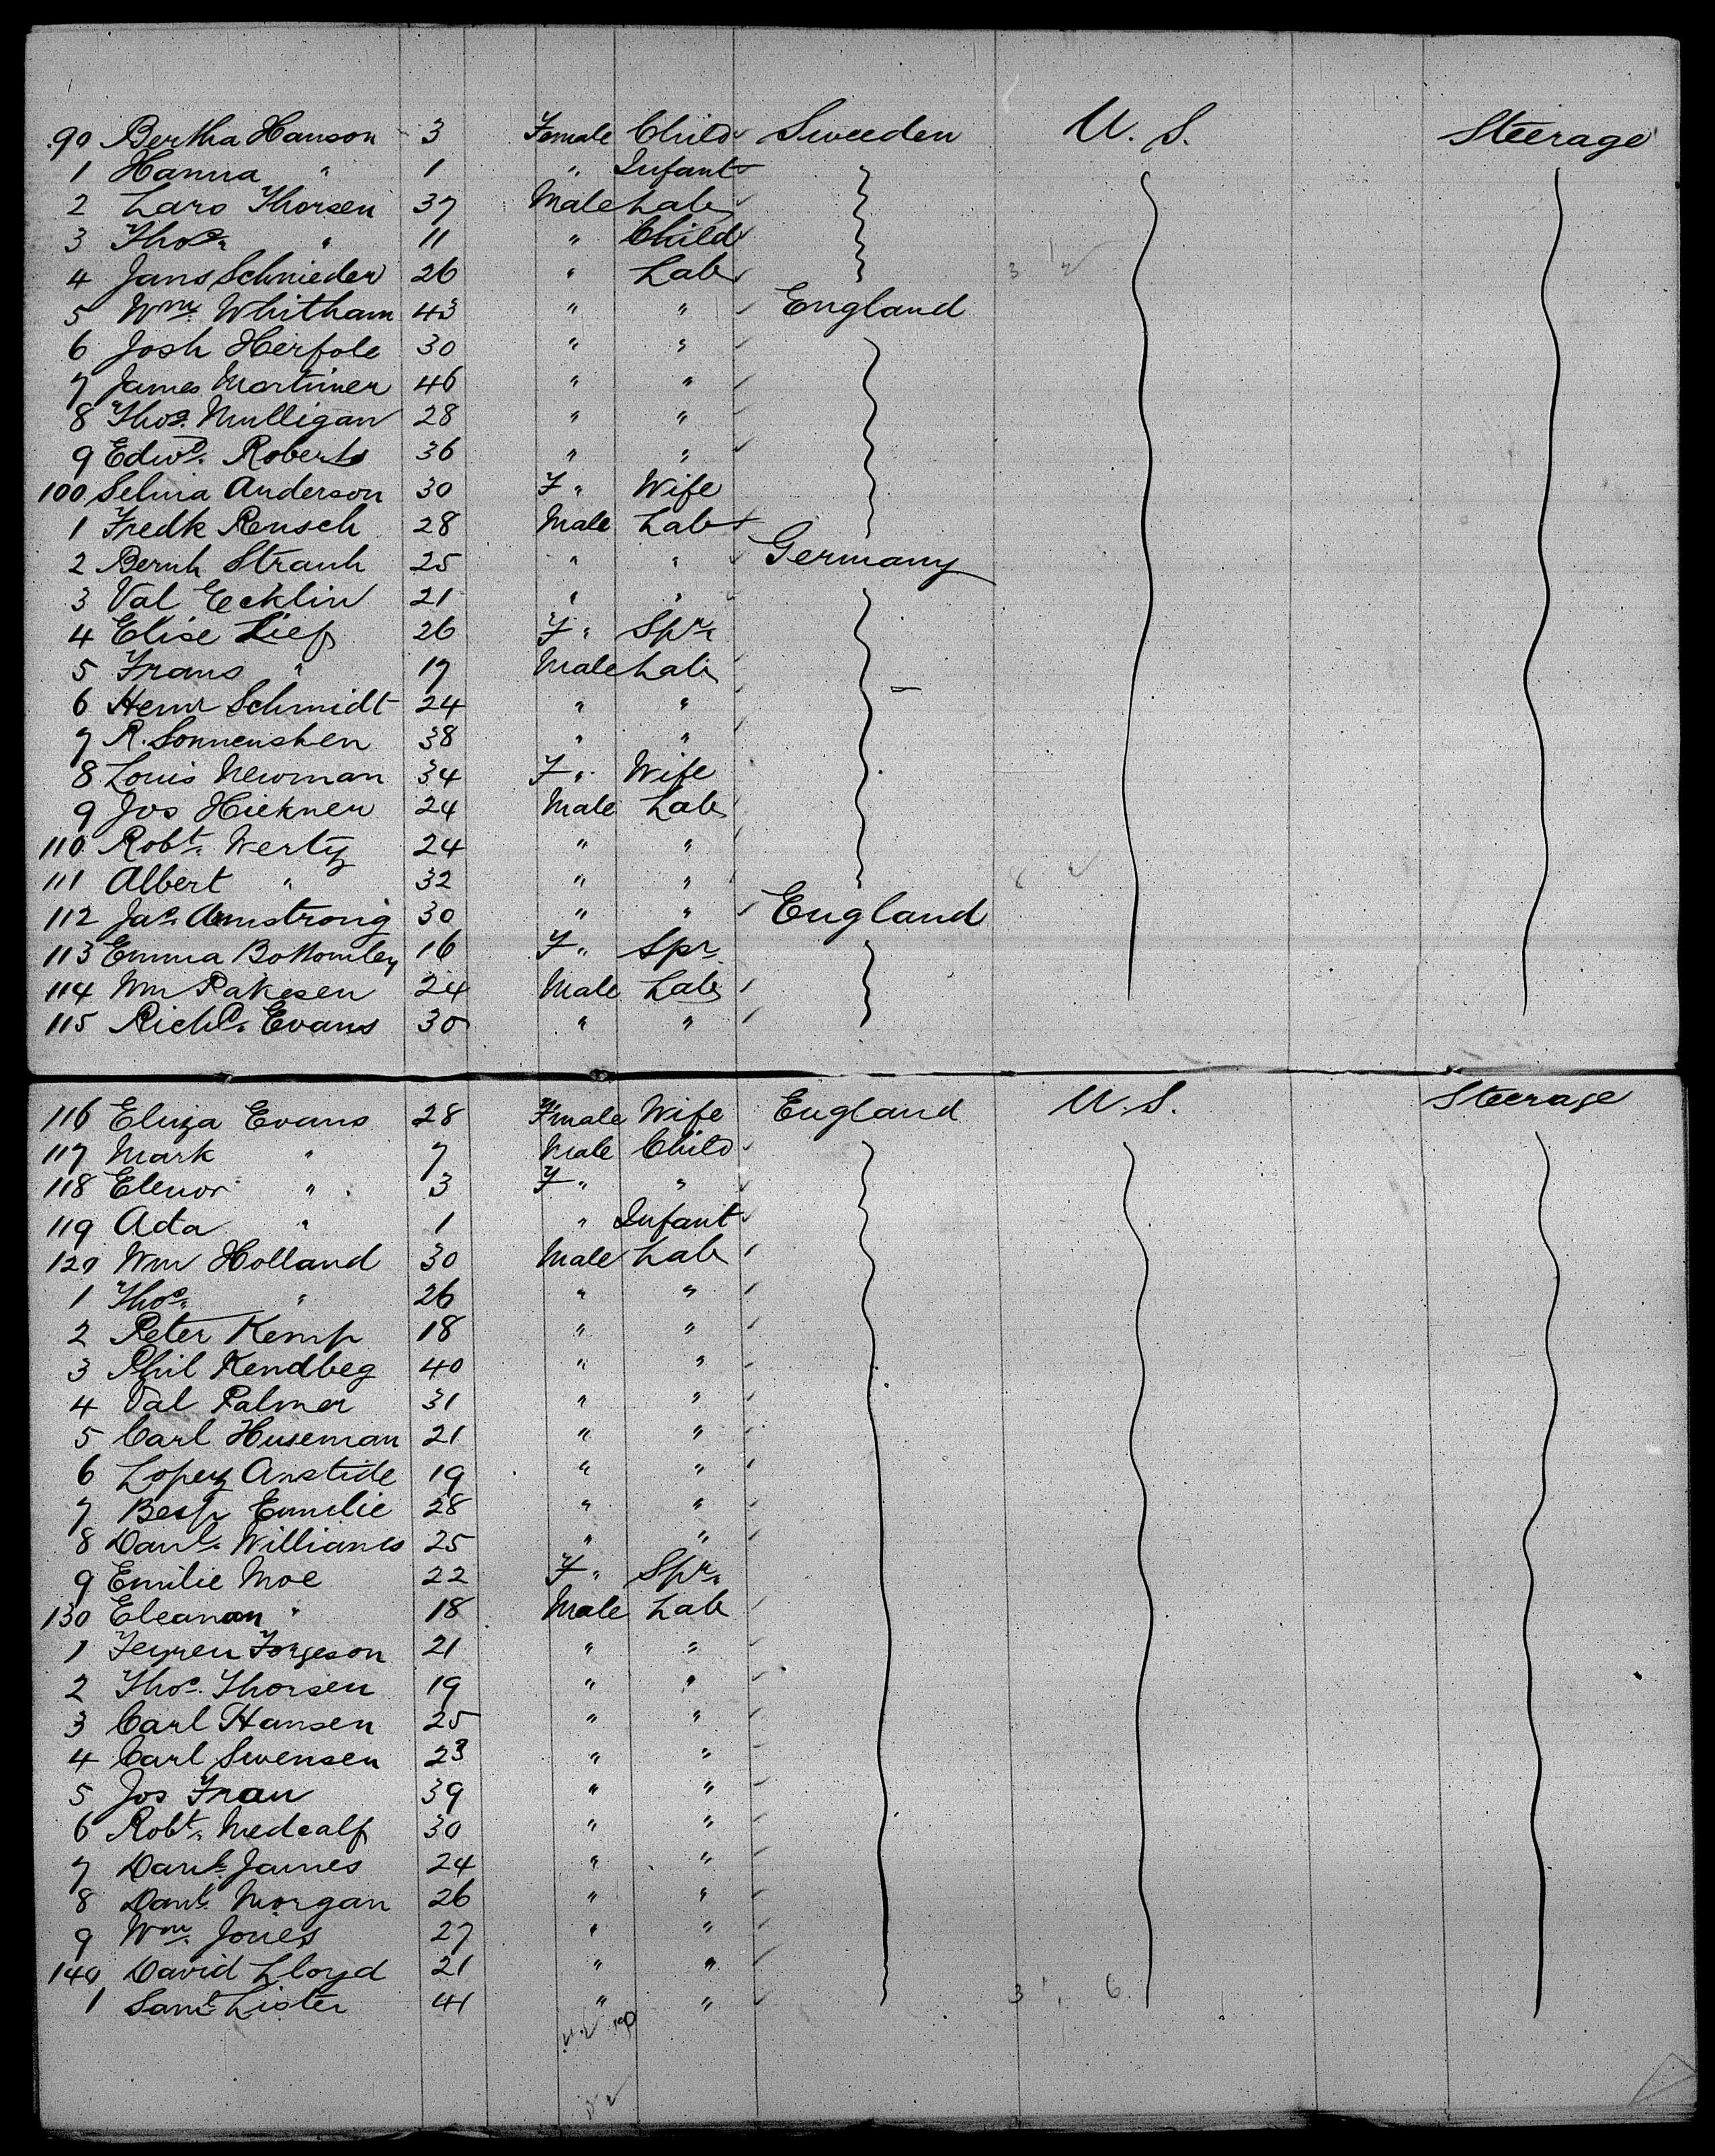 90 Bertha Hanson 3 Female Child Sweeden U. S. Steerage
1 Hanna " 1 " Infant
2 Lars Thorsen 37 Male Lab
3 Thos. " 11 " Child
4 Jans Schnieder 26 " Lab
5 Wm. Whitham 43 " " England
6 Josh Herfole 30 " "
7 James Mortimer 46 " "
8 Thos. Mulligan 28 " "
9 Edwd. Roberts 36 " "
100 Selina Anderson 30 F " Wife
1 Fredk Rensch 28 Male Lab
2 Bernh Strauh 25 " " Germany
3 Val Ecklin 21 " "
4 Elise Lief 26 F " Spr.
5 Frans " 17 Male Lab
6 Henr Schmidt 24 " "
7 R. Sonnenshen 38 " "
8 Louis Newman 34 F " Wife
9 Jos Hickner 24 Male Lab
110 Robt. Werty 24 " "
111 Albert " 32 " "
112 Jas. Armstrong 30 " " England
113 Emma Bottomley 16 F " Spr.
114 Wm Rakesen 24 Male Lab
115 Richd. Evans 30 " "
116 Eliza Evans 28 Female Wife England U. S. Steerage
117 Mark " 7 Male Child
118 Elenor " 3 F " "
119 Ada " 1 " Infant
120 Wm Holland 30 Male Lab
1 Thos. " 26 " "
2 Peter Kemp 18 " "
3 Phil Kendbeg 40 " "
4 Val Palmer 31 " "
5 Carl Huseman 21 " "
6 Lopez Anstide 19 " "
7 Besp Emilie 28 " "
8 Danl. Williams 25 " "
9 Emilie Moe 22 F " Spr.
130 Eleanan " 18 Male Lab
1 Jorgeson 21 " "
2 Thos. Thorsen 19 " "
3 Carl Hansen 25 " "
4 Carl Swensen 23 " "
5 Jos Frau 39 " "
6 Robt. Medcalf 30 " "
7 Danl. James 24 " "
8 Danl. Morgan 26 " "
9 Wm. Jones 27 " "
140 David Lloyd 21 " "
1 Saml. Lister 41 " " 3 1 6